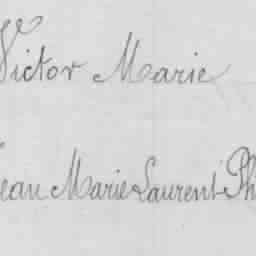 Victor Marie
Jean Marie Laurent Ph